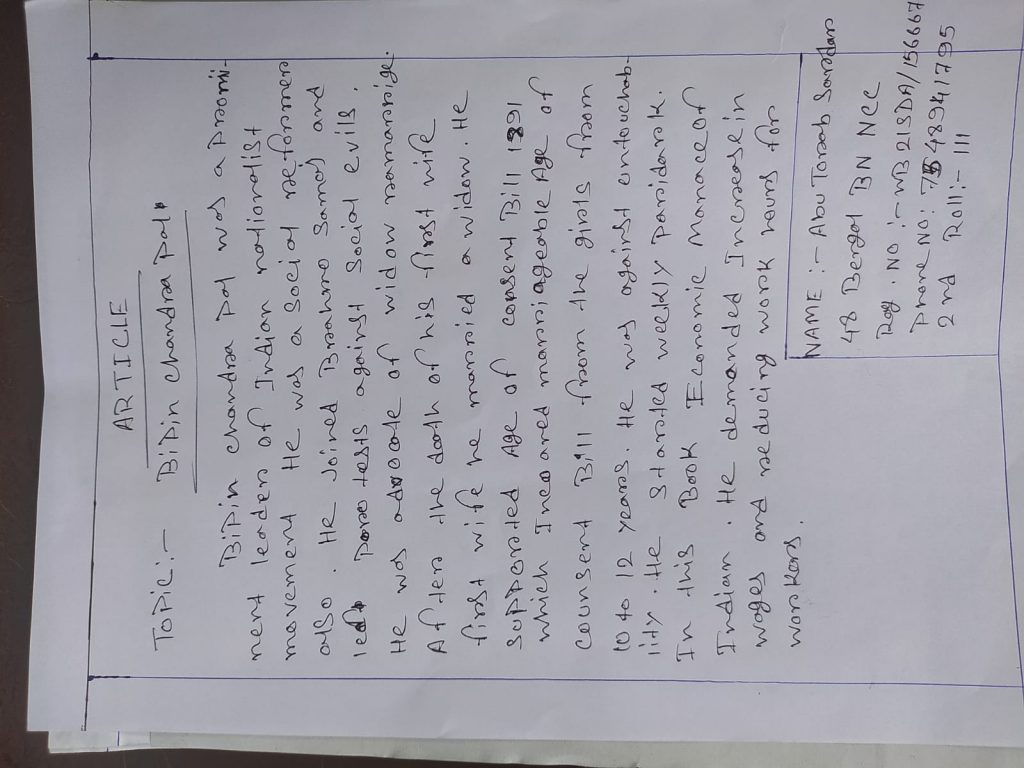 ARTICLE
TOPIC:- BiPin chandra Pal.
BiPin chandra pal was a Promi-
nent leader of Indian nationalist
movement He was a social reformer
also. He joined Brahmo samaj and
led protests against social evils.
He was advocate of widow remarrige.
After the death of his first wife
first wife he married a widow. He
supported Age of consent Bill 1891
which Increared marriageable Age of
counsent Bill from the girls from
10 to 12 years. He was against untouchab-
lity. He started weekly paridarsk.
In this Book Economic Manace of
Indian. He demanded Increase in
wages and reducing work hours for
workers.
NAME :- Abu Torab Sardar
48 Bengal BN NCC
Reg. NO :- WB21SDA/156667
Phone NO: 7548941795
2nd Roll:- 111